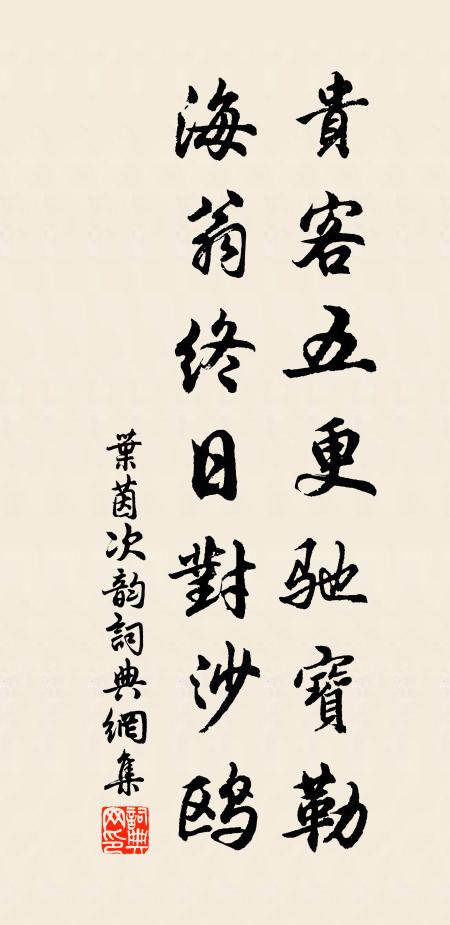 貴客五更馳寶勒
海翁終日對沙鷗
葉茵次韵詞典網集
詞典網印